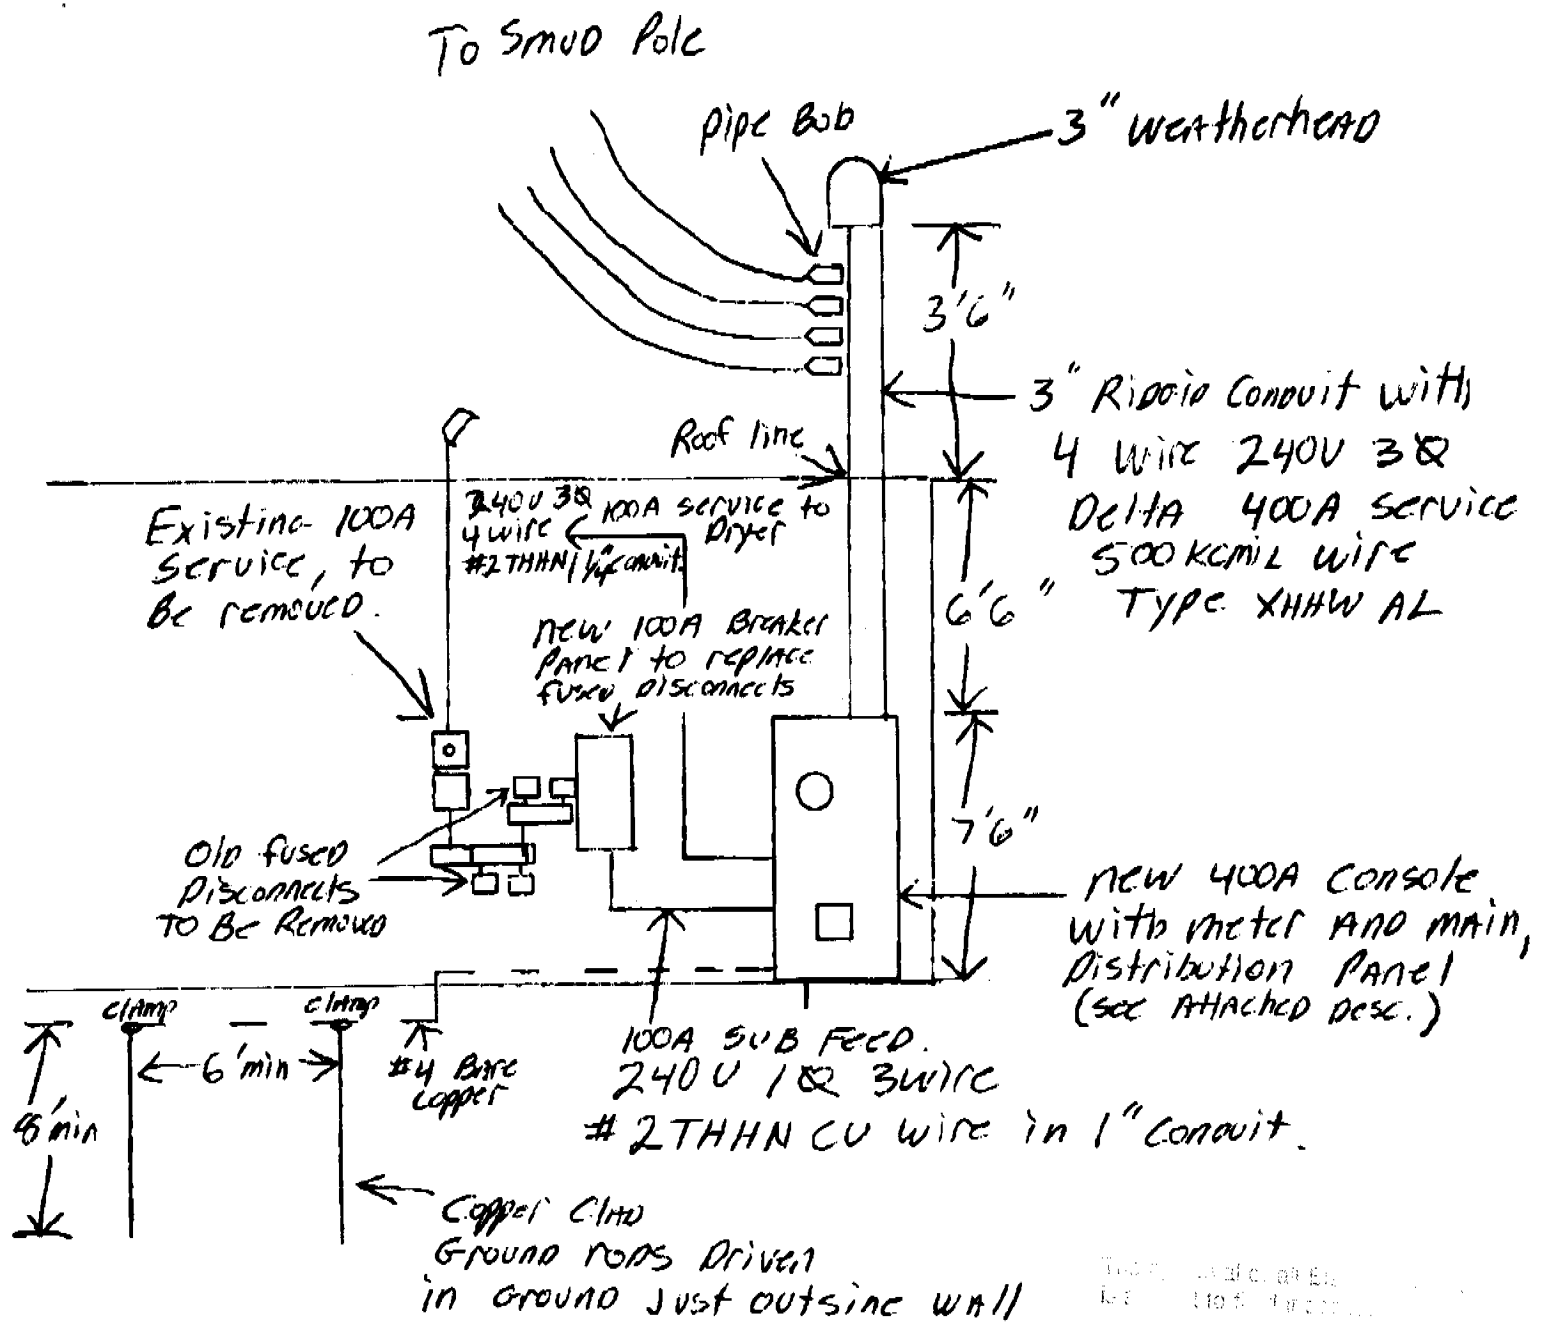 To SMUD Pole
pipe Bob
3" WEATHERHEAD
3'6"
3" RIGGID CONDUIT WITH
4 Wire 240V 3Ø
Delta 400A service
500 KCMIL wire
Type XHHW AL
Roof line
Existing 100A
service, to
Be removed.
240V 3Ø
4 wire
#2 THHN/ 1 1/4" conduit.
100A service to
Dryer
6'6"
new 100A Breaker
PANEL to replace
fused Disconnects
7'6"
Old fused
Disconnects
TO Be Removed
new 400A Console
with meter AND MAIN,
Distribution PANEl
(see ATTACHED Desc.)
clamp
clamp
6'min
#4 Bare
copper
8'min
100A SUB FEED.
240V 1Ø 3wire
#2 THHN CU wire in 1" Conduit.
Copper Clad
Ground rods Driven
in Ground Just outside wall